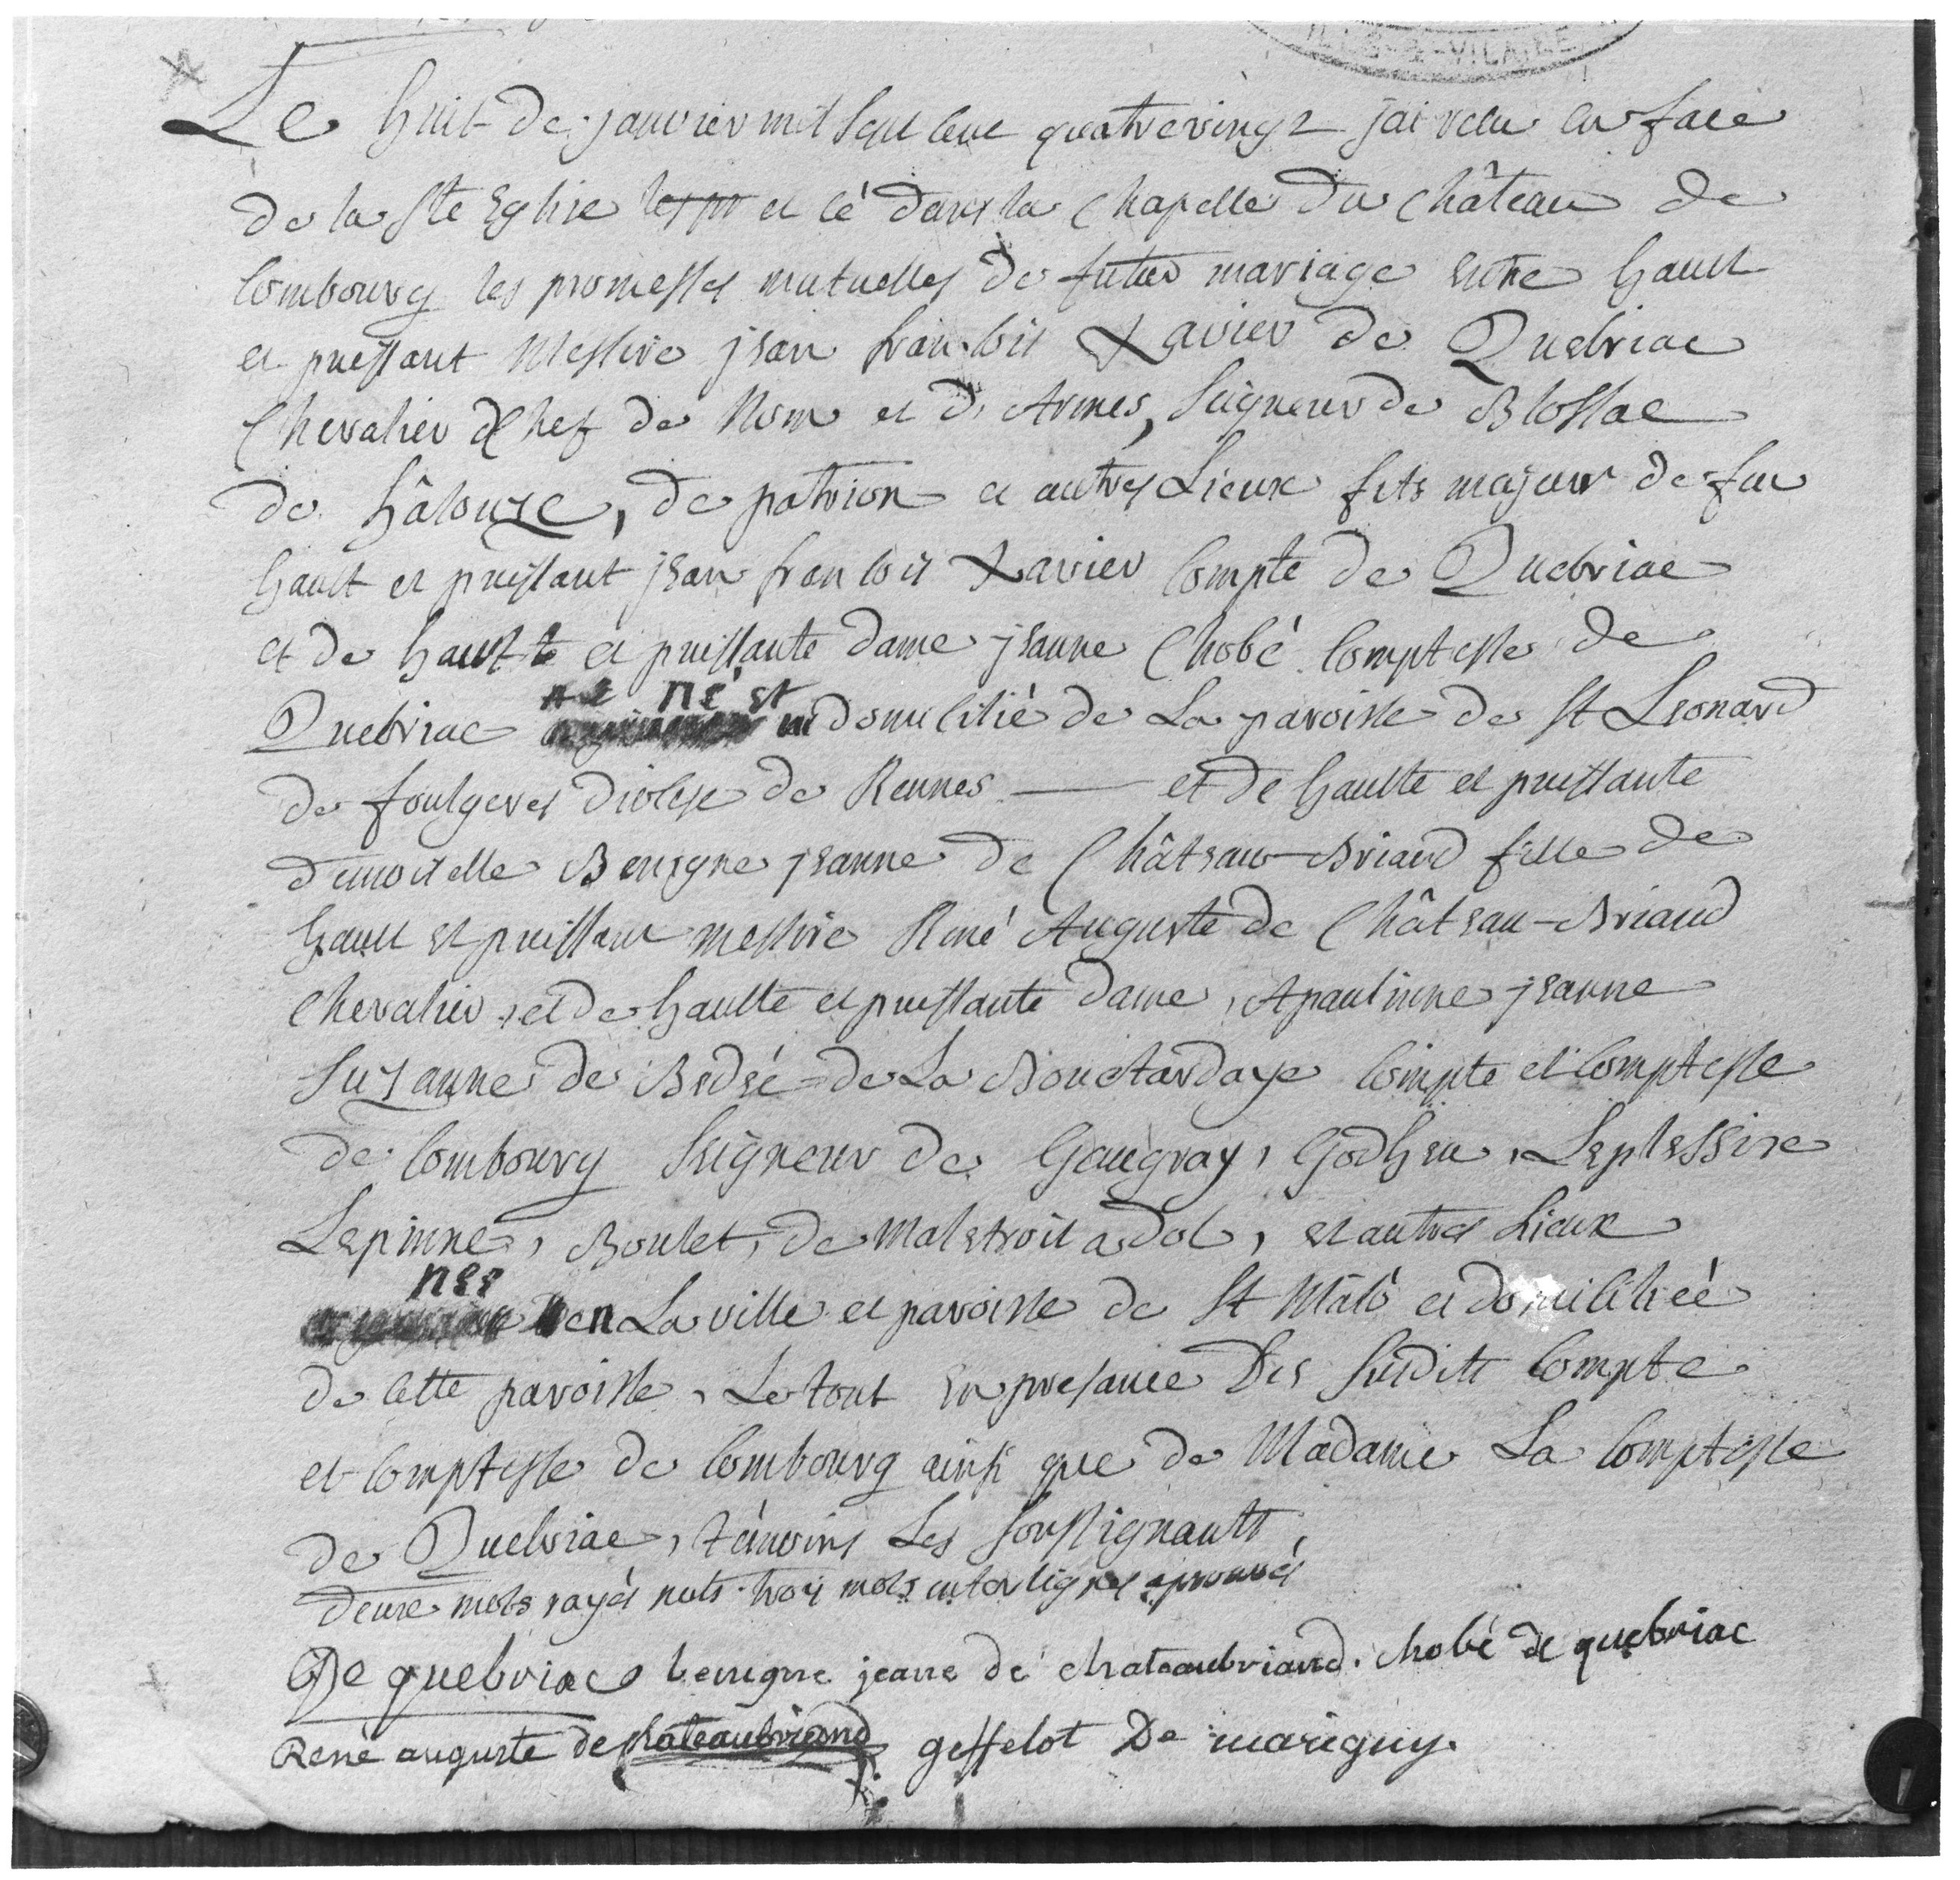 ILLE-&-VILAINE
Le huit de janvier mil sept cent quatrevingt jai recu en face
de la Ste Eglise et cé dans la Chapelle du Château de
Combourg les promesses mutuelles de futur mariage entre hault
et puissant Messire jean francois Xavier de Quebriac
Chevalier Chef de Nom et d'Armes, Seigneur de Blossac
de hâlouze, de patrion et autres Lieux fils majeur de feu
hault et puissant jean francois Xavier Compte de Quebriac
et de hautte et puissante dame jeanne Chobé Comptesse de
né et
Quebriac domicilié de La paroisse de St Leonard
de foulgeres diocese de Rennes — et de haulte et puissante
demoiselle Benigne jeanne de Château-Briand fille de
hault et puissant messire René Auguste de Château-Briand
Chevalier, et de haulte et puissante dame, Apaulinne jeanne
Suzanne de Bedée de La Bouetardaye Compte et Comptesse
de Combourg Seigneur de Gaugray, Godheu, Leplessixe
Lepinne, Boulet, de Malestroit a dol, et autres Lieux
née
en La ville et paroisse de St Malo et domiciliée
de cette paroisse, Le tout en presance Des Susdits Compte
et Comptesse de Combourg ainsi que de Madame La Comptesse
de Quebriac, témoins Les Soussignants
deux mots rayés nuls trois mots interlignes aprouvés
De quebriac benigne jeane de chateaubriand. chobé de quebriac
René auguste de chateaubriand geffelot De marigny.